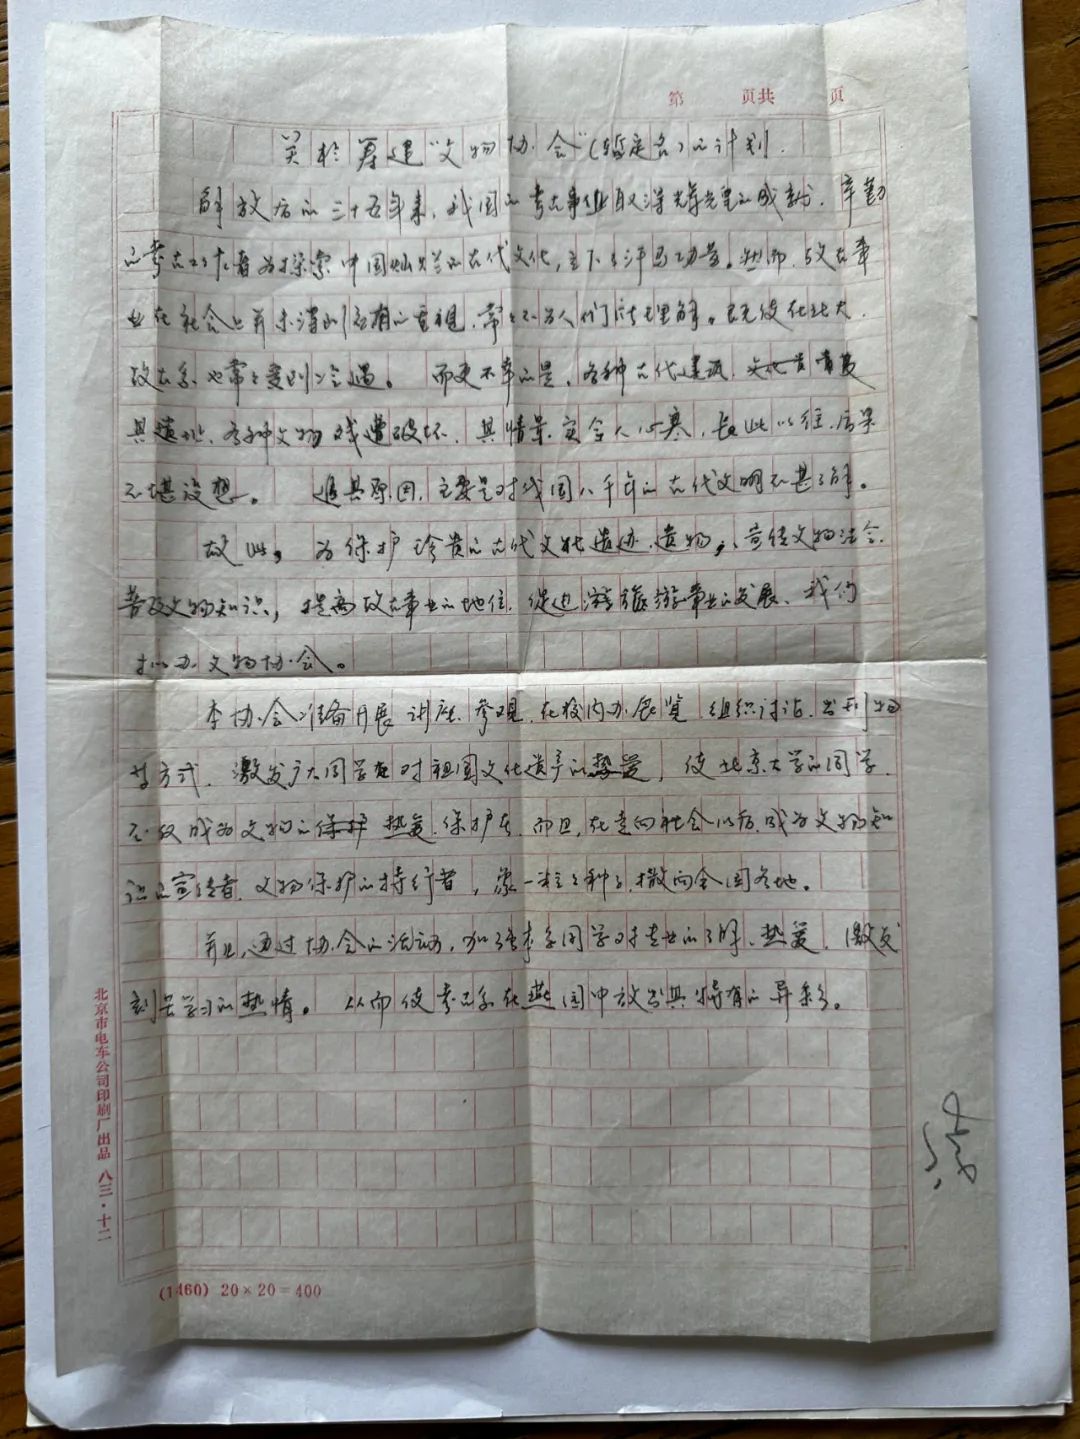 第 页共 页
关于筹建“文物协会”(暂定名)的计划.
解放后的三十五年来,我国的考古事业取得光辉的成就.辛勤
的考古工作者为探索中国灿烂的古代文化,立下了汗马功劳。然而,考古事
业在社会上并未得到应有的重视,常常不为人们所理解。既使在北大,
考古系也常常受到冷遇。 而更不幸的是,各种古代建筑,
具遗址、各种文物戏遭破坏.其情景实令人心寒,长此以往,后果
不堪设想。 追其原因,主要是对我国八千年的古代文明不甚了解。
故此,为保护珍贵的古代文化遗迹、遗物,宣传文物法令.
普及文物知识,提高考古事业的地位.促进旅游事业的发展、我们
拟办文物协会。
本协会准备开展讲座.参观.在校内办展览 组织讨论.出刊物
等方式.激发广大同学对祖国文化遗产的热爱,使北京大学的同学.
不仅成为文物的保护 热爱.保护者.而且,在走向社会以后,成为文物知
识的宣传者.文物保护的持行者,像一粒粒种子,撒向全国各地。
并且,通过协会的活动,加强本系同学对专业的了解、热爱.激发
刻苦学习的热情。 从而使考古系在燕园中放出其特有的异彩。
北京市电车公司印刷厂出品 八三·十二
(1460) 20×20=400